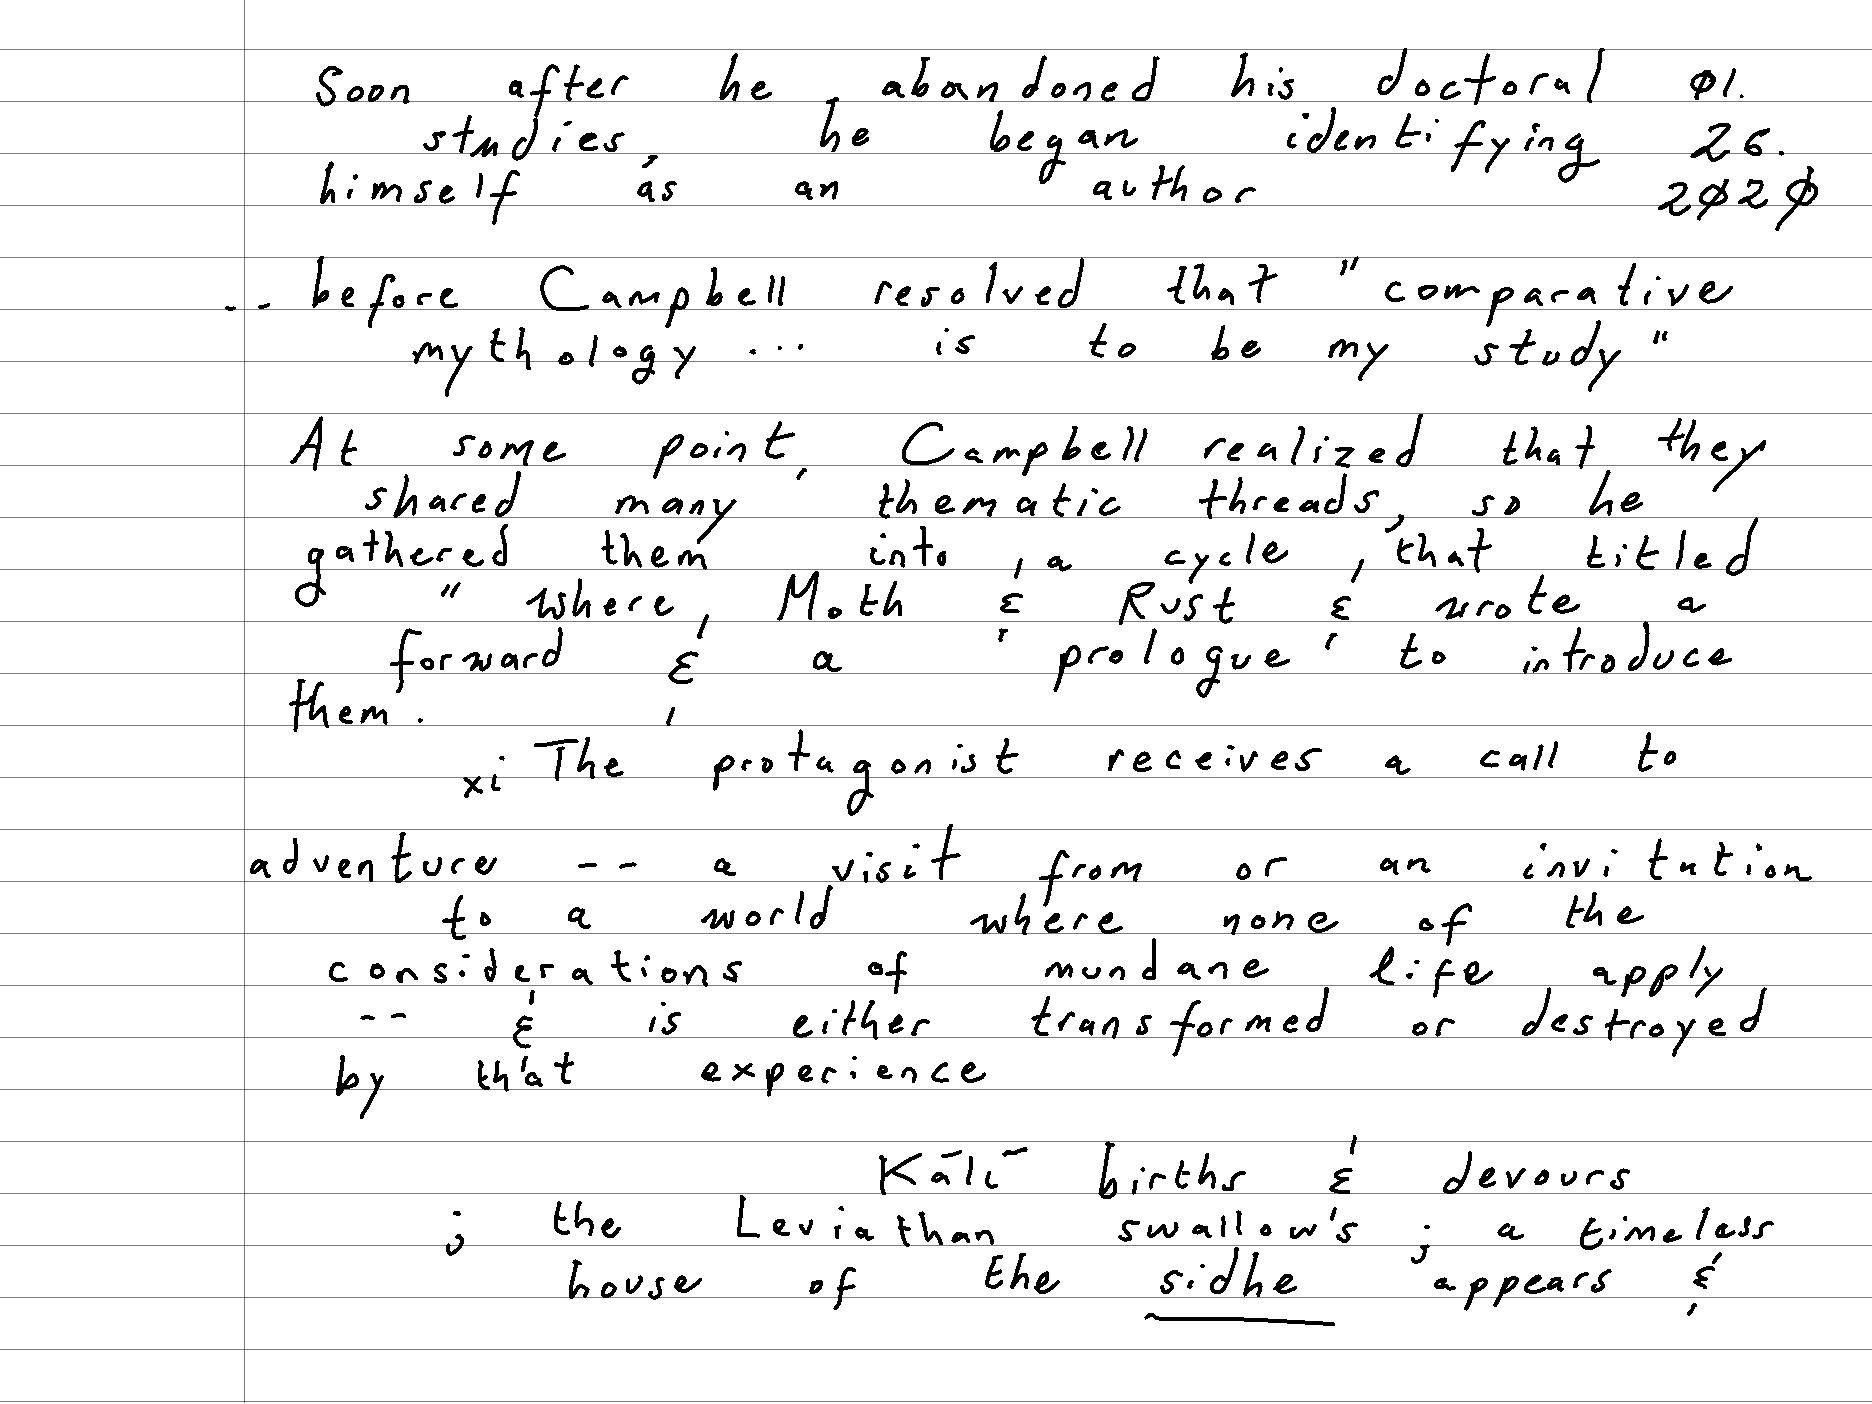 Soon after he abandoned his doctoral 01.
studies, he began identifying 26.
himself as an author 2020
-- before Campbell resolved that "comparative
mythology ... is to be my study"
At some point, Campbell realized that they
shared many thematic threads, so he
gathered them into a cycle, that titled
"where, Moth & Rust & wrote a
forward & a 'prologue' to introduce
them.
xi The protagonist receives a call to
adventure -- a visit from or an invitation
to a world where none of the
considerations of mundane life apply
-- & is either transformed or destroyed
by that experience
Kālī births & devours
; the Leviathan swallow's ; a timeless
house of the sidhe appears &